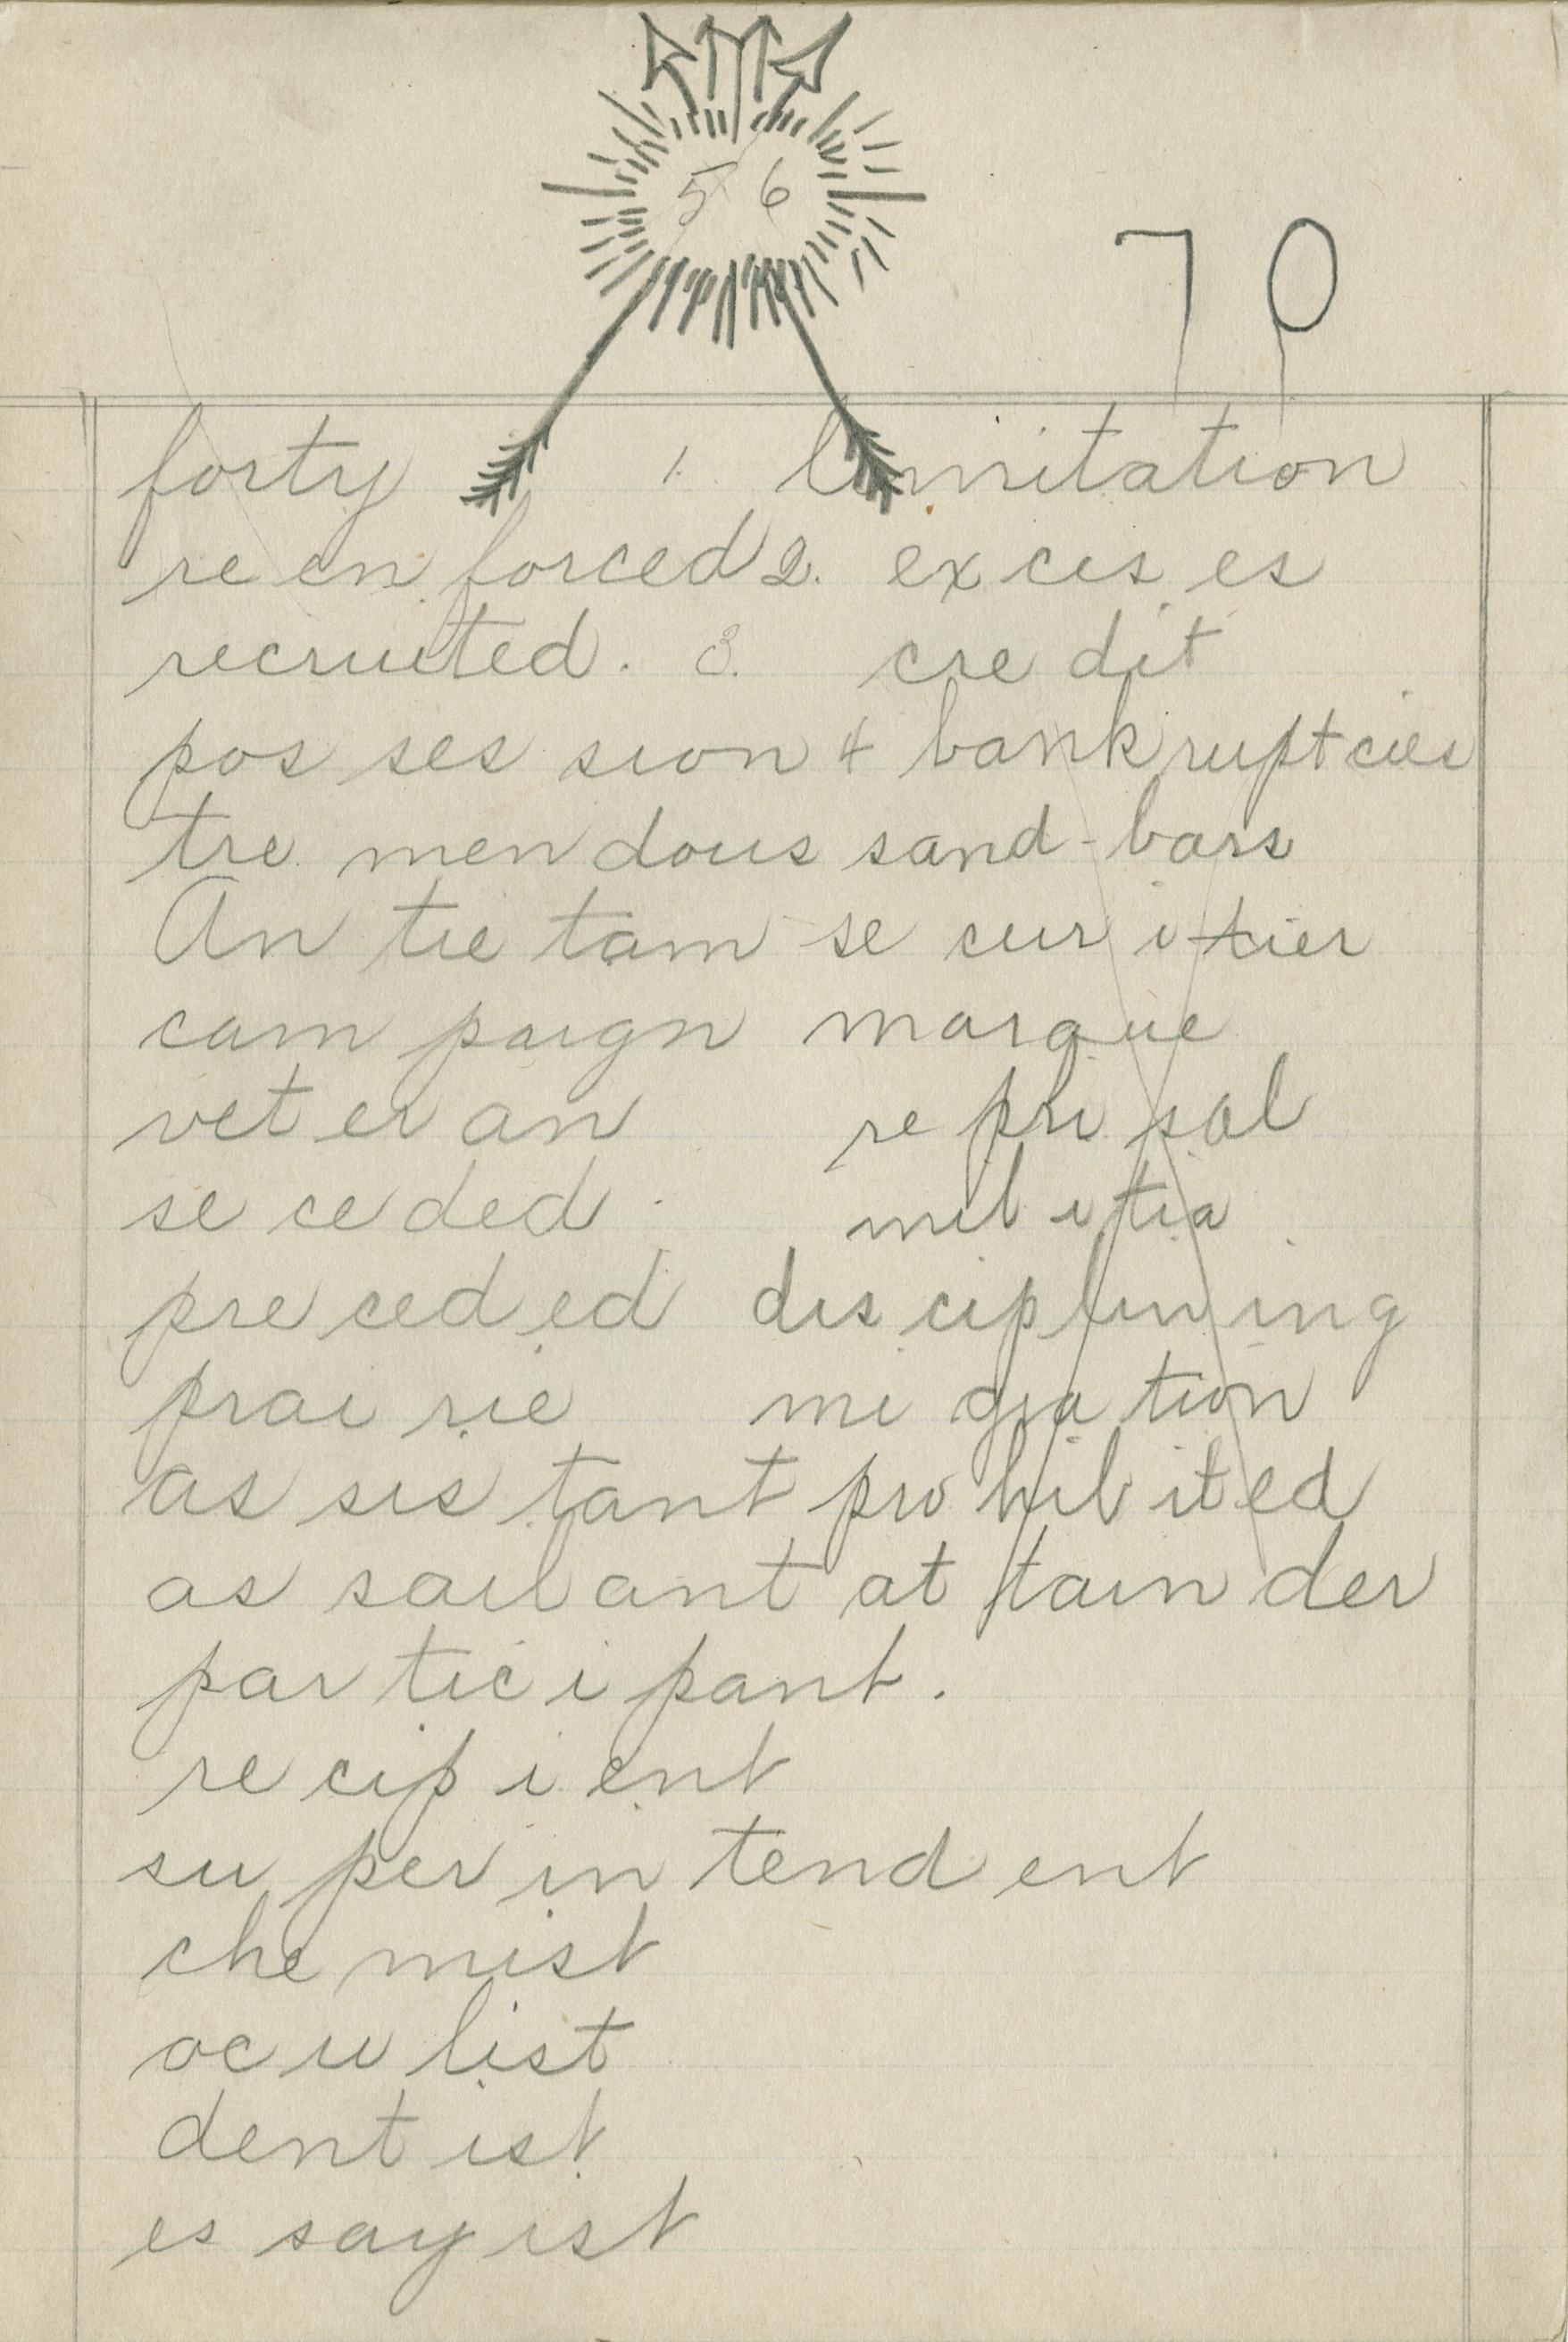 5 6
70
forty 1. limitation
re en forced 2. ex cis es
recruited. 3. cre dit
pos ses sion 4 bank rupt cies
tre men dous sand-bars
An tie tam se cur i tier
cam paign marque
vet er an re pri sal
se ce ded mil i tia
pre ced ed dis ciplin ing
prai rie mi gra tion
as sis tant pro hib it ed
as sail ant at tain der
par tic i pant.
re cip i ent
su per in tend ent
che mist
oc u list
dent ist
es say ist